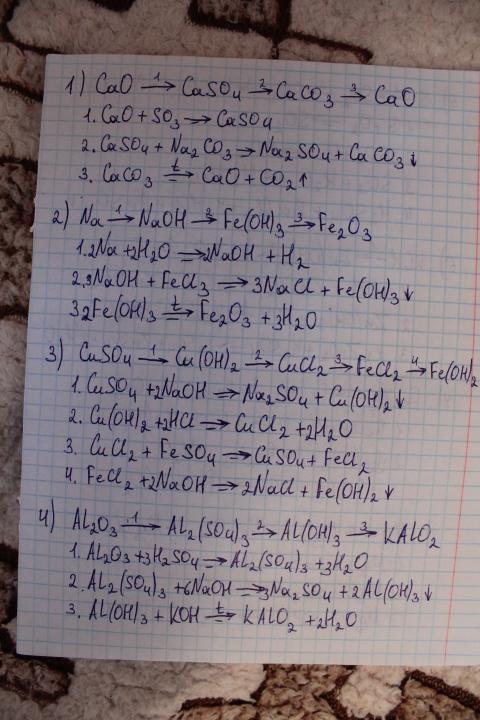 1) CaO 1→ CaSO4 2→ CaCO3 3→ CaO
1. CaO + SO3 → CaSO4
2. CaSO4 + Na2CO3 ⇒ Na2SO4 + CaCO3↓
3. CaCO3 t⇒ CaO + CO2↑
2) Na 1→ NaOH 2→ Fe(OH)3 3→ Fe2O3
1. 2Na + 2H2O ⇒ 2NaOH + H2
2. 3NaOH + FeCl3 ⇒ 3NaCl + Fe(OH)3↓
3 2Fe(OH)3 t⇒ Fe2O3 + 3H2O
3) CuSO4 1→ Cu(OH)2 2→ CuCl2 3→ FeCl2 4→ Fe(OH)2
1. CuSO4 + 2NaOH ⇒ Na2SO4 + Cu(OH)2↓
2. Cu(OH)2 + 2HCl ⇒ CuCl2 + 2H2O
3. CuCl2 + FeSO4 ⇒ CuSO4 + FeCl2
4. FeCl2 + 2NaOH ⇒ 2NaCl + Fe(OH)2↓
4) Al2O3 1→ Al2(SO4)3 2→ Al(OH)3 3→ KAlO2
1. Al2O3 + 3H2SO4 ⇒ Al2(SO4)3 + 3H2O
2. Al2(SO4)3 + 6NaOH ⇒ 3Na2SO4 + 2Al(OH)3↓
3. Al(OH)3 + KOH t⇒ KAlO2 + 2H2O